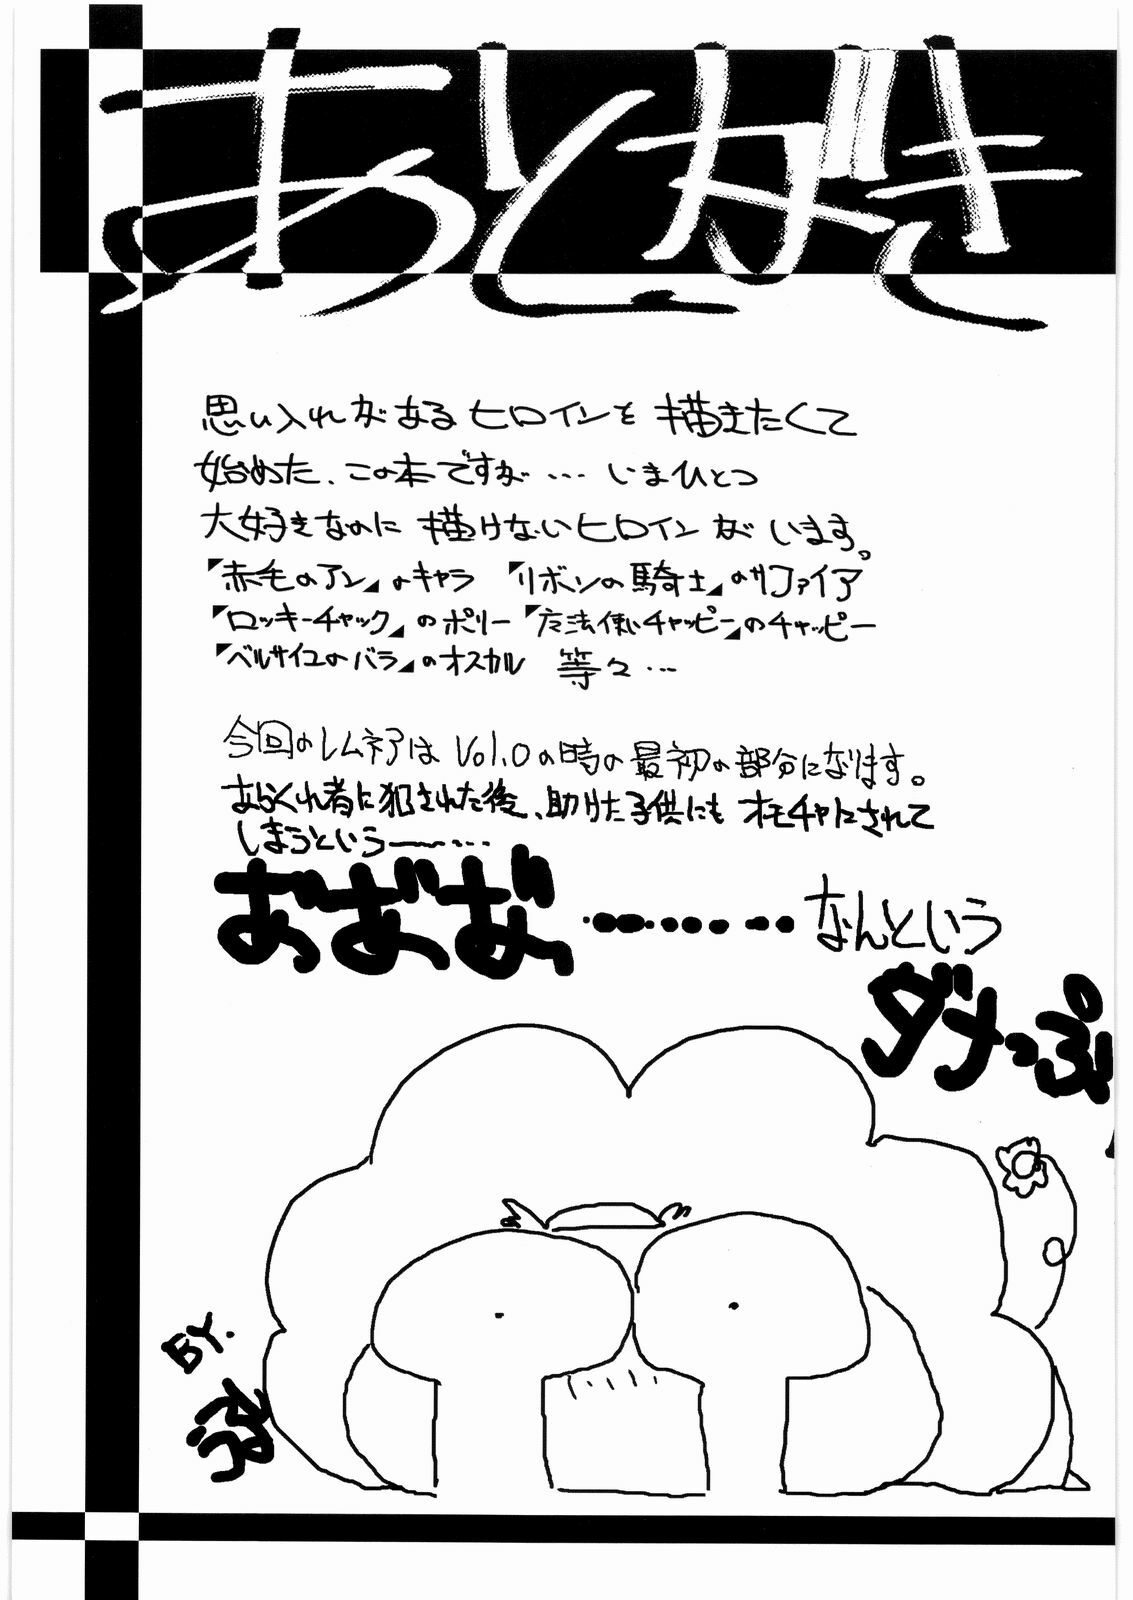 あとがき
思い入れがあるヒロインを描きたくて
始めた、この本ですが…いまひとつ
大好きなのに描けないヒロインがいます。
『赤毛のアン』のキャラ 『リボンの騎士』のサファイア
『ロッキーチャック』のポリー『魔法使いチャッピー』のチャッピー
『ベルサイユのバラ』のオスカル 等々…
今回のレムネアはVol.0の時の最初の部分になります。
あらくれ者に犯された後、助けた子供にもオモチャにされて
しまうという――…
おっ ばっ ばっ ……… なんという
ダメっぷり
BY.